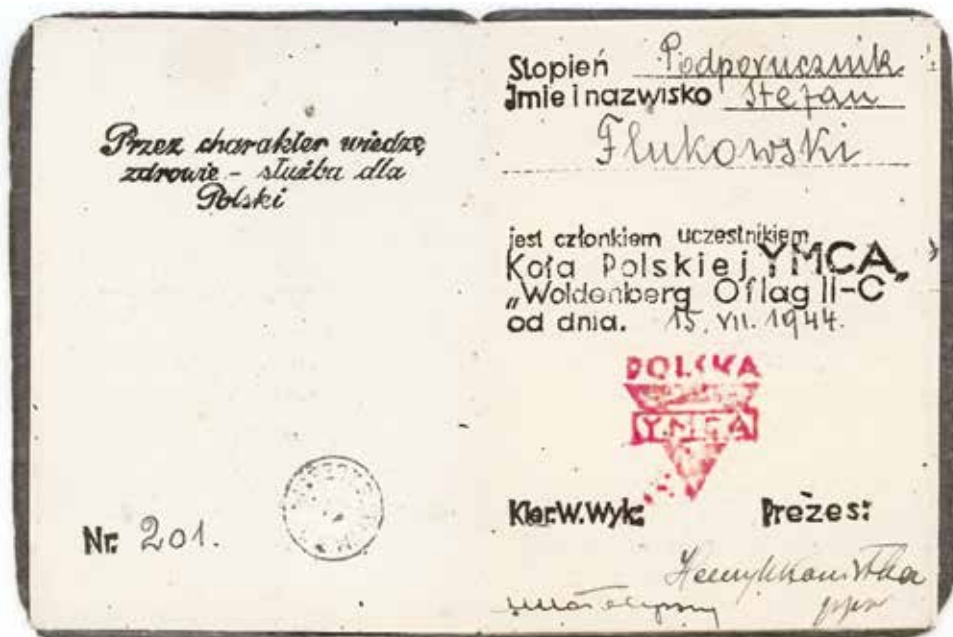 Przez charakter wiedzę
zdrowie – służba dla
Polski
Nr. 201.
Stopień Podporucznik
Imie i nazwisko Stefan
Flukowski
jest członkiem uczestnikiem
Koła Polskiej YMCA
„Woldenberg Oflag II-C”
od dnia. 15. VII. 1944.
POLSKA
YMCA
Kier.W.Wyk: Prezes:
Henryk